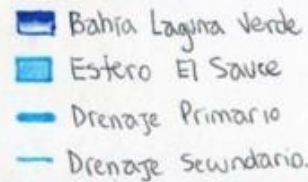 Bahía Laguna Verde
Estero El Sauce
Drenaje Primario
Drenaje Secundario.